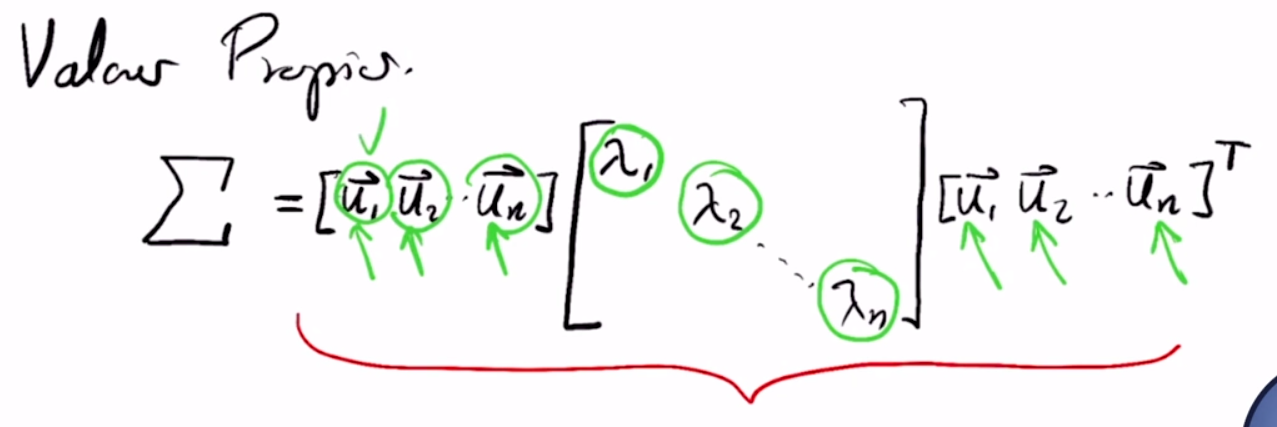 Valores Propios.
Σ = [u⃗₁ u⃗₂ ·· u⃗ₙ] [λ₁ λ₂ ⋱ λₙ] [u⃗₁ u⃗₂ ·· u⃗ₙ]ᵀ